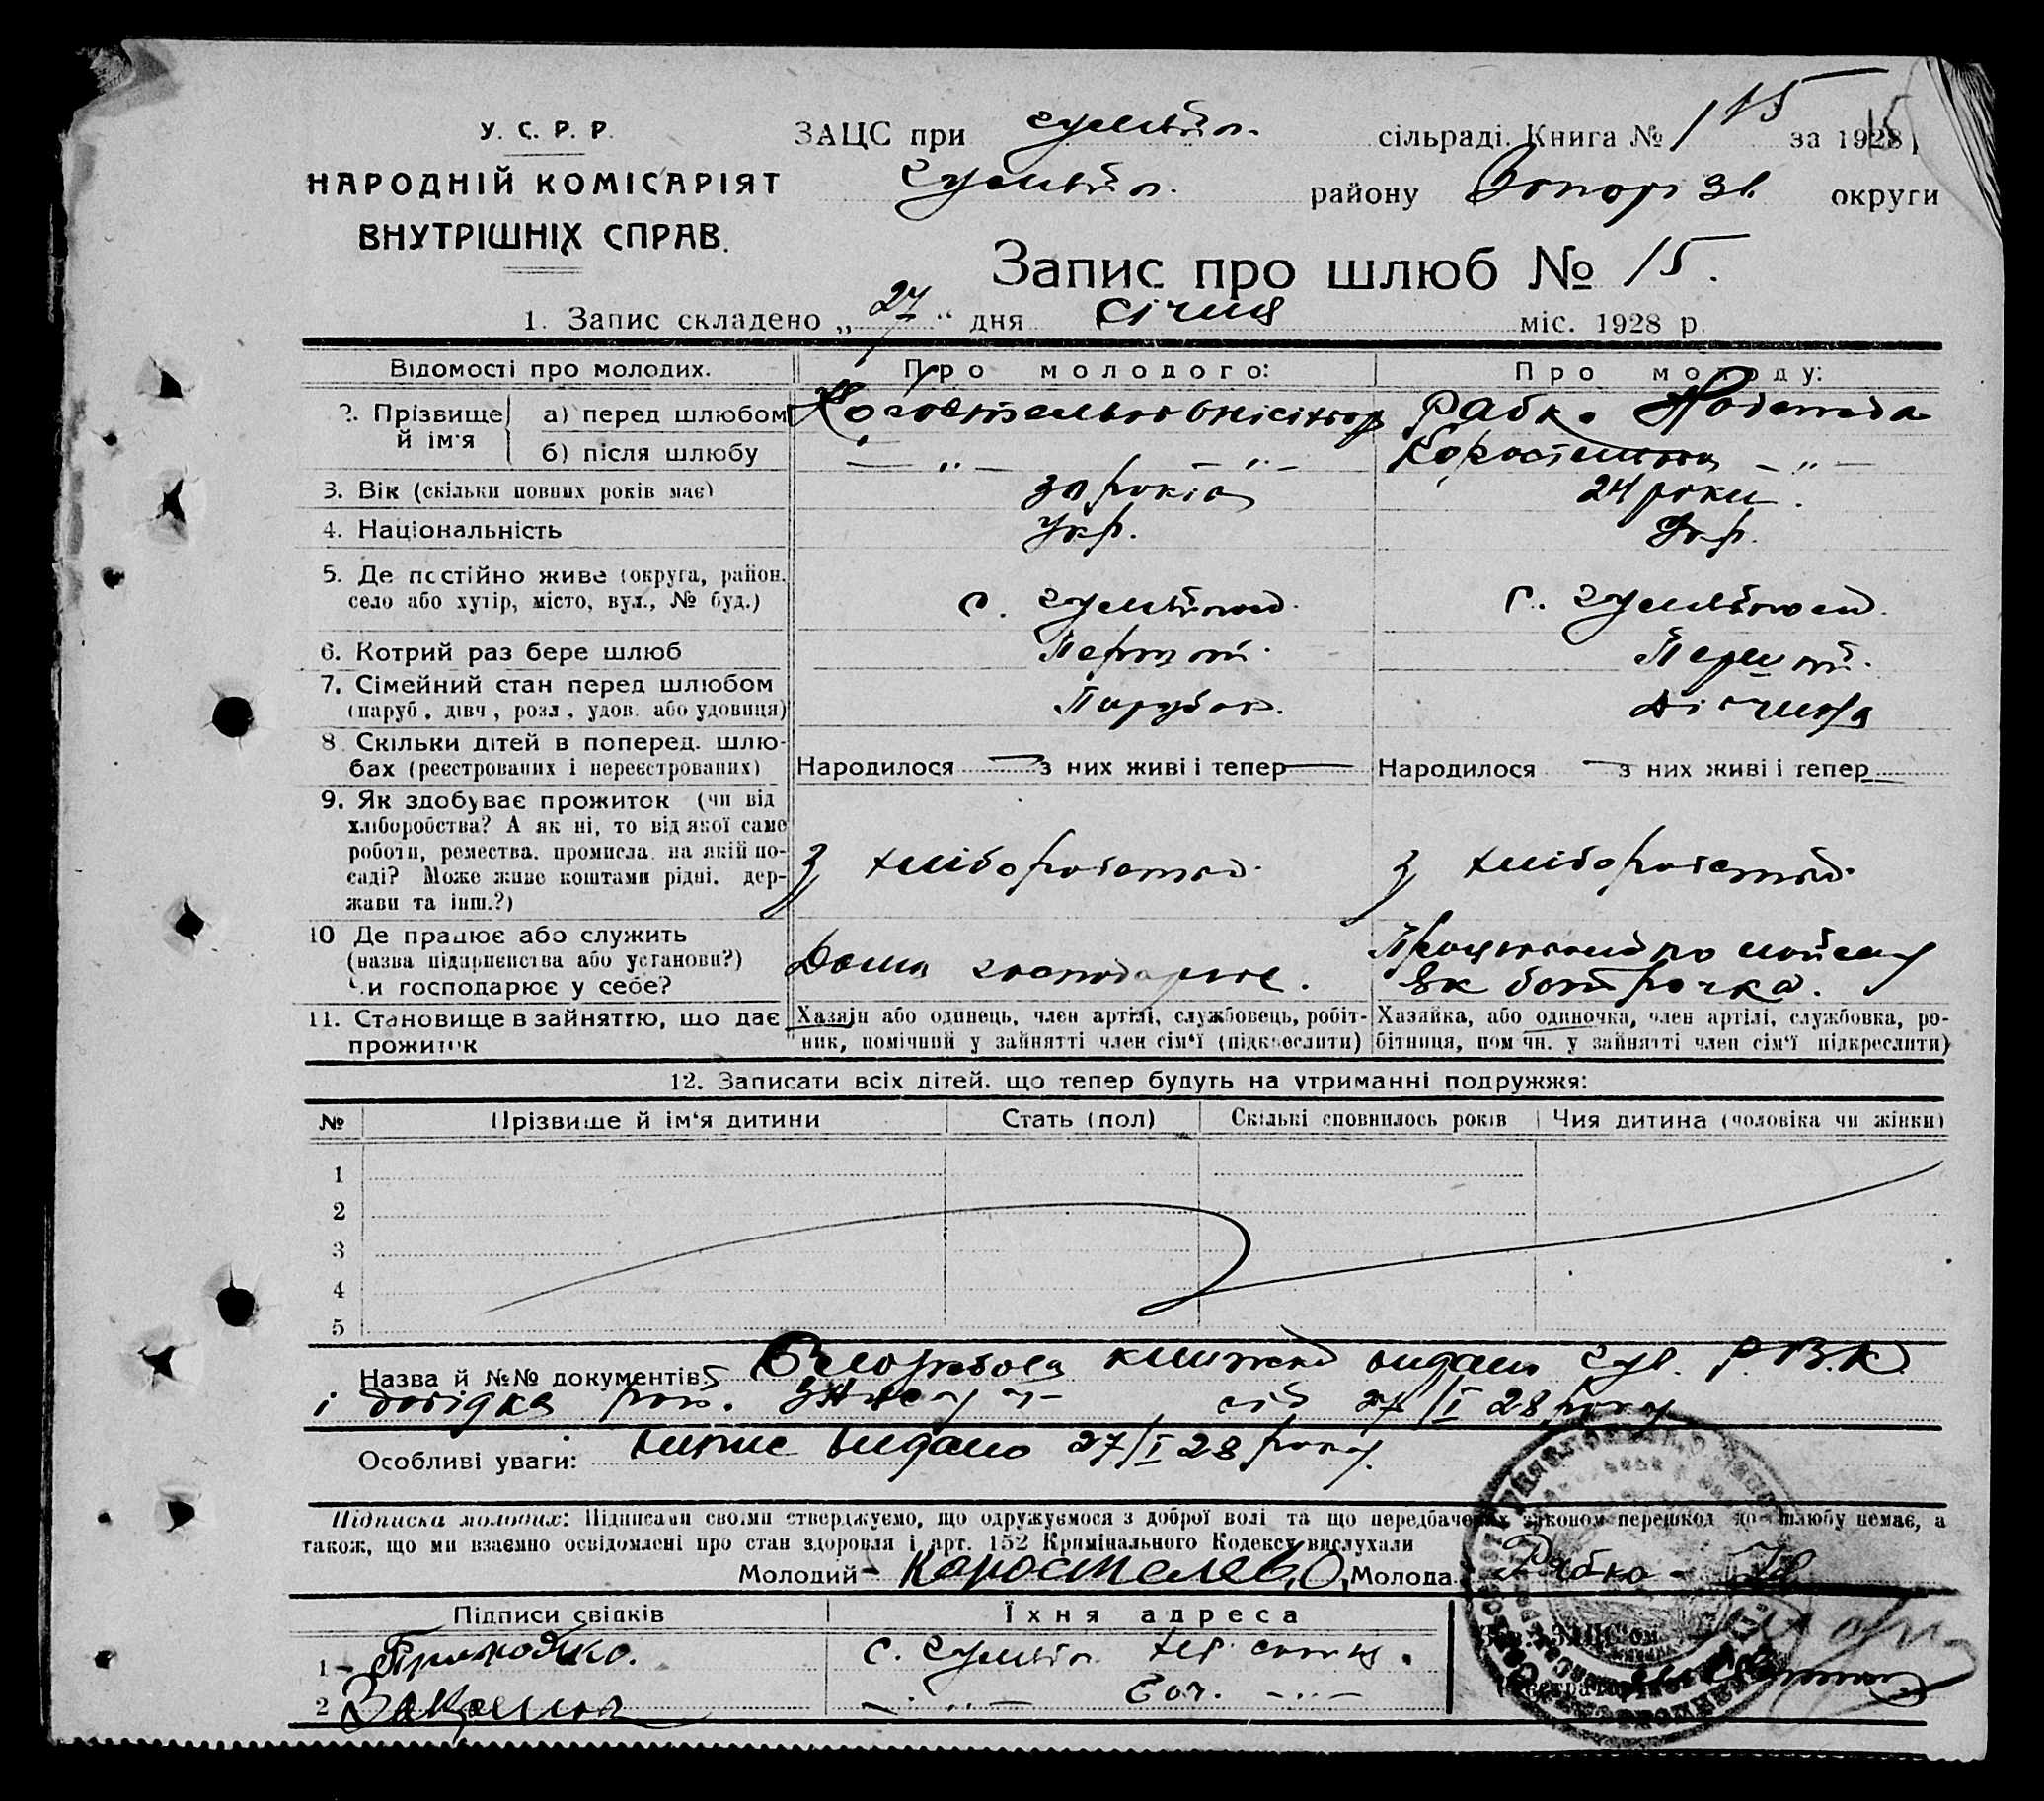 У. С. Р. Р.
НАРОДНІЙ КОМІСАРІЯТ
ВНУТРІШНІХ СПРАВ.
ЗАЦС при Гуляйп. сільраді. Книга № 1 15 за 1928
15
Гуляйп. району Запоріз. округи
Запис про шлюб № 15.
1. Запис складено „27“ дня січня міс. 1928 р.
Відомості про молодих. Про молодого: Про молоду:
2. Прізвище й ім'я а) перед шлюбом Коростельов Рабко
б) після шлюбу — „ — — „ — — „ —
3. Вік (скільки повних років має) 30 років 24 роки.
4. Національність Укр. Укр.
5. Де постійно живе (округа, район,
село або хутір, місто, вул., № буд.) с. Гуляйполе с. Гуляйполе
6. Котрий раз бере шлюб Перший. Перший.
7. Сімейний стан перед шлюбом
(паруб., дівч., розл., удов. або удовиця) Парубок. Дівчина
8. Скільки дітей в поперед. шлю-
бах (реєстрованих і нереєстрованих) Народилося — з них живі і тепер — Народилося — з них живі і тепер —
9. Як здобуває прожиток (чи від
хліборобства? А як ні, то від якої саме
роботи, ремества, промисла, на якій по-
саді? Може живе коштами рідні, дер-
жави та інш.?) З хліборобства. З хліборобства.
10 Де працює або служить
(назва підприємства або установи?)
Чи господарює у себе? Дома господарює. по найму
як батрачка.
11. Становище в зайняттю, що дає
прожиток
Хазяїн або одинець, член артілі, службовець, робіт-
ник, помічний у зайнятті член сім'ї (підкреслити)
Хазяйка, або одиночка, член артілі, службовка, ро-
бітниця, помічн. у зайнятті член сім'ї підкреслити)
12. Записати всіх дітей, що тепер будуть на утриманні подружжя:
№ Прізвище й ім'я дитини Стать (пол) Скількі сповнилось років Чия дитина (чоловіка чи жінки)
1
2
3
4
5
Назва й №№ документів: книжка видана Гул. Р.В.К.
і довідка від 27/I 28 року
Особливі уваги: випис видано 27/I 28 року.
Підписка молодих: Підписами своїми стверджуємо, що одружуємося з доброї волі та що передбачених законом перешкод до шлюбу немає, а
також, що ми взаємно освідомлені про стан здоровля і арт. 152 Кримінального Кодексу вислухали
Молодий Коростелев О, Молода Рабко -
Підписи свідків Їхня адреса
1 – Приходько. с. Гуляйп.
2